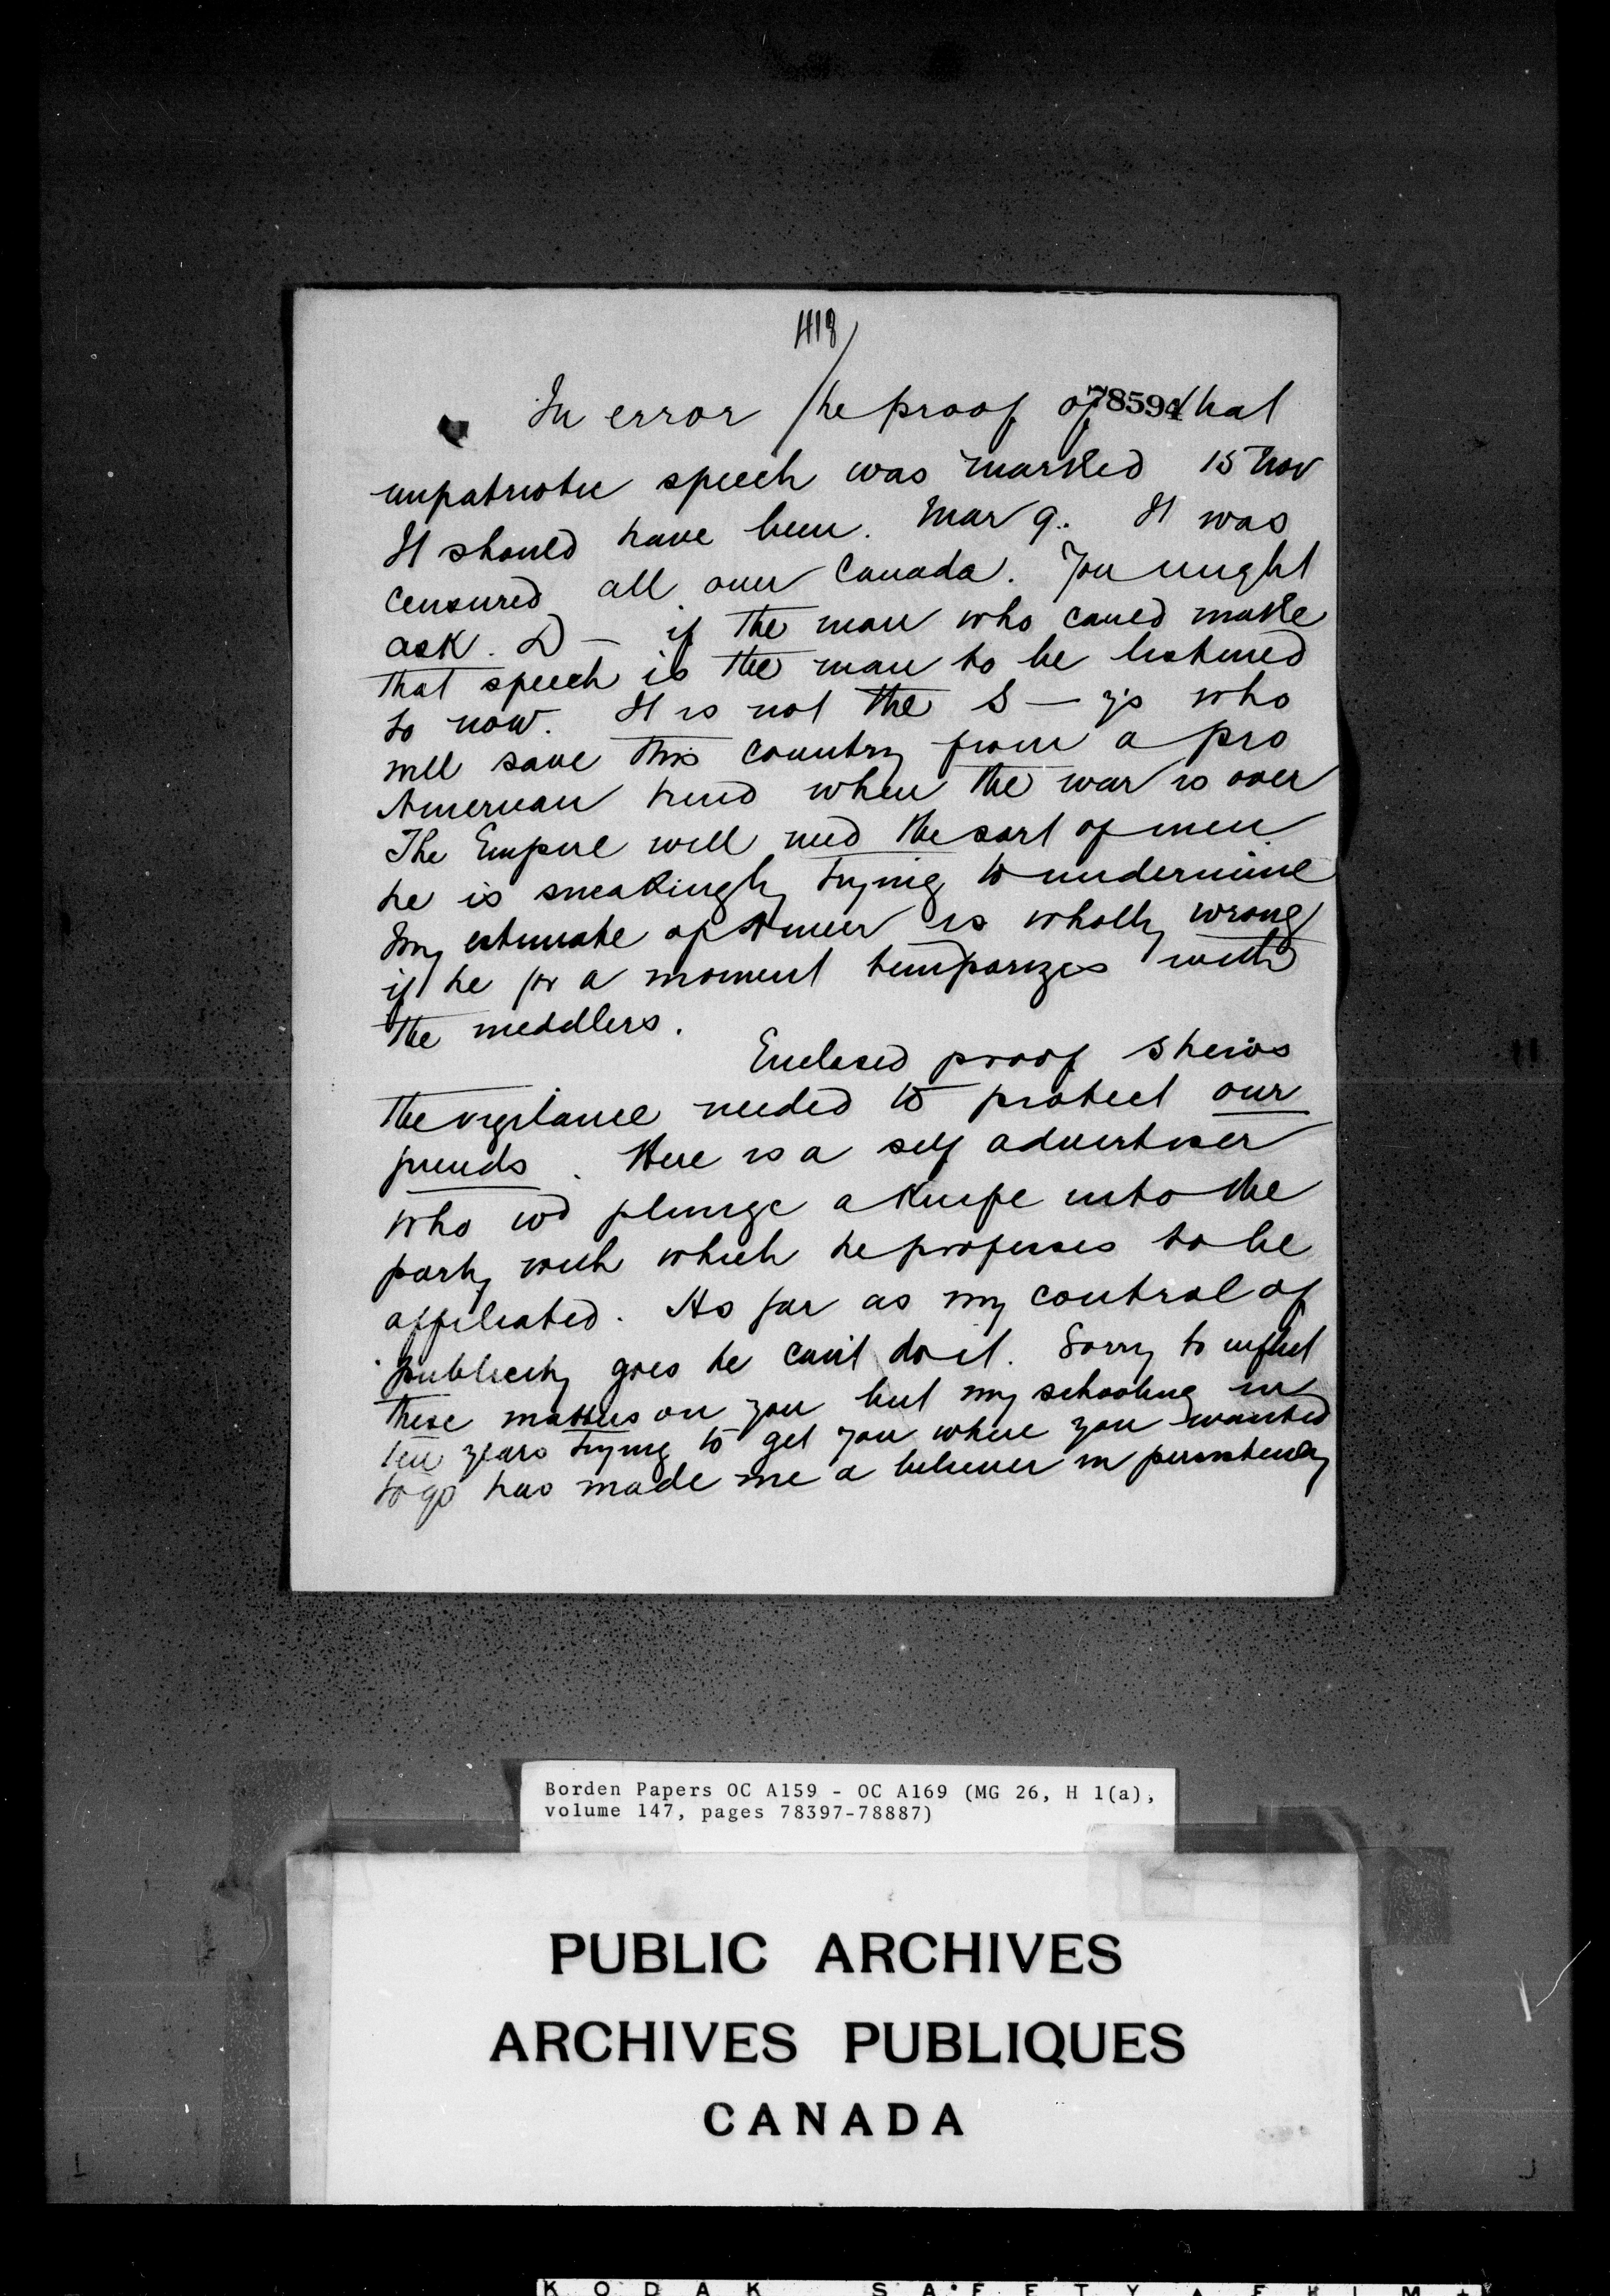 In error the proof of that
78594
unpatriotic speech was marked 15 Nov
It should have been. Mar 9. It was
censured all over Canada. You might
ask. D — if the man who could make
that speech is the man to be listened
to now. It is not the S — y's who
will save this country from a pro
American trend when the war is over
The Empire will need the sort of men
he is sneakingly trying to undermine
My estimate of is wholly wrong
if he for a moment temporizes with
the meddlers.
Enclosed proof shews
the vigilance needed to protect our
friends. Here is a self advertiser
who wd plunge a knife into the
party with which he professes to be
affiliated. As far as my control of
publicity goes he can't do it. Sorry to inflict
these matters on you but my schooling in
ten years trying to get you where you wanted
to go has made me a believer in persistency
Borden Papers OC A159 - OC A169 (MG 26, H 1(a),
volume 147, pages 78397-78887)
PUBLIC ARCHIVES
ARCHIVES PUBLIQUES
CANADA
KODAK SAFETY FILM